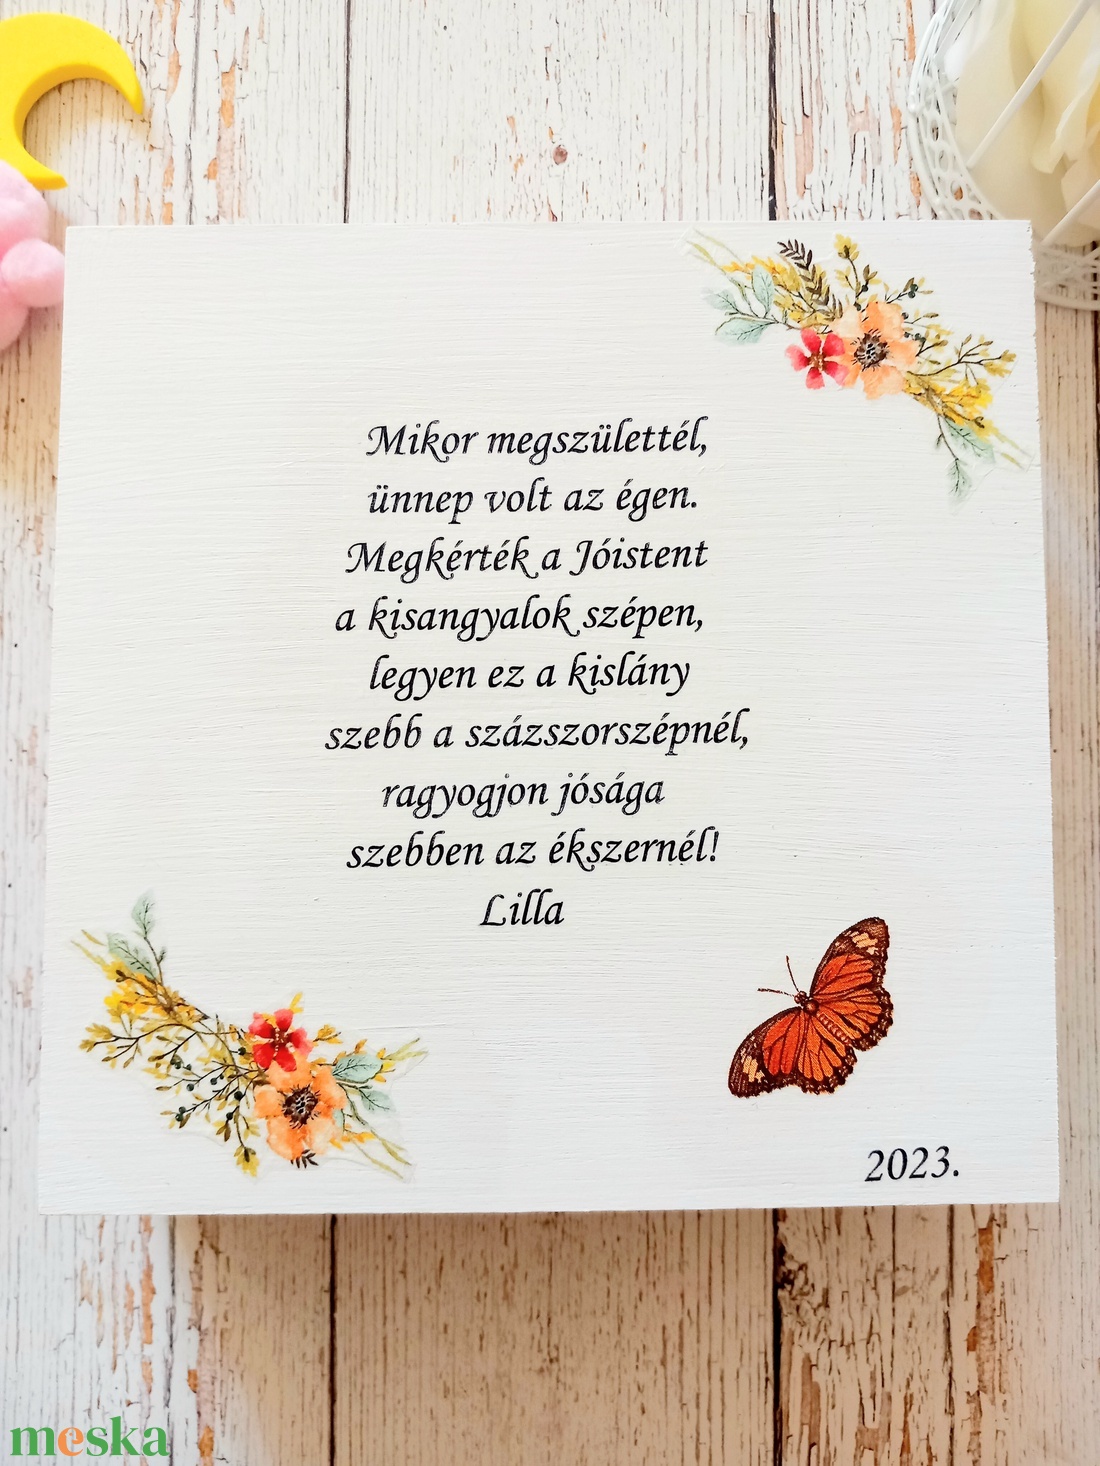 Mikor megszülettél,
ünnep volt az égen.
Megkérték a Jóistent
a kisangyalok szépen,
legyen ez a kislány
szebb a százszorszépnél,
ragyogjon jósága
szebben az ékszernél!
Lilla
2023.
meska